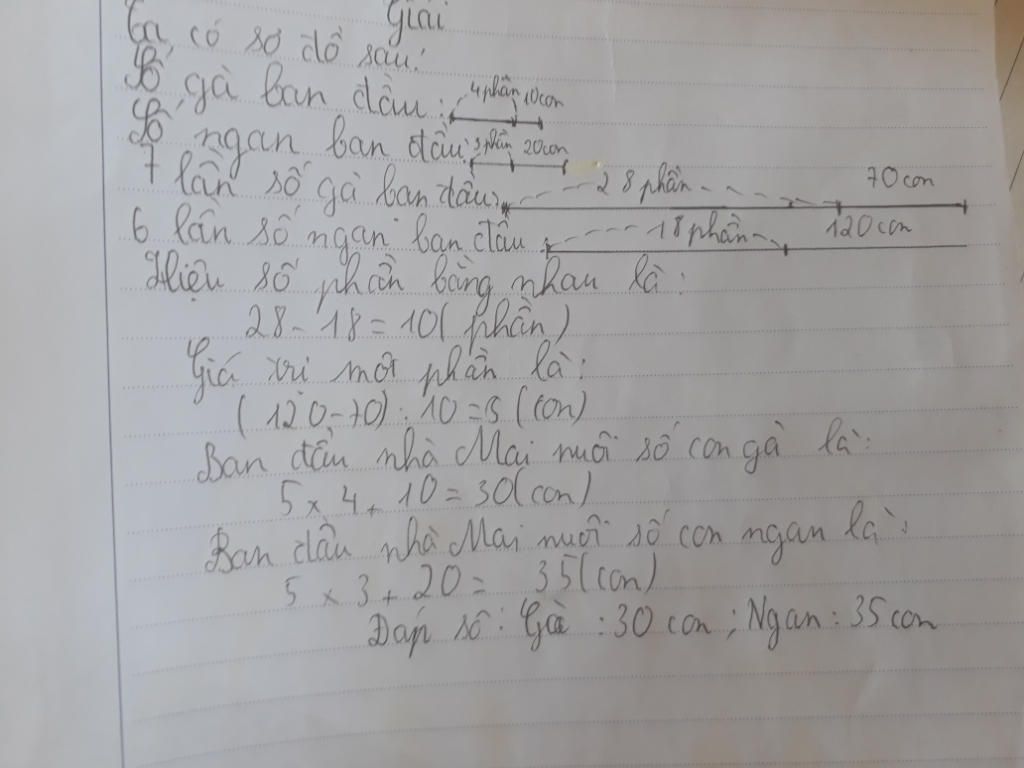 Giải
Ta có sơ đồ sau:
Số gà ban đầu: 4 phần 10 con
Số ngan ban đầu: 3 phần 20 con
7 lần số gà ban đầu: 28 phần 70 con
6 lần số ngan ban đầu: 18 phần 120 con
Hiệu số phần bằng nhau là:
28 - 18 = 10 (phần)
Giá trị một phần là:
(120-70) : 10 = 5 (con)
Ban đầu nhà Mai nuôi số con gà là:
5 x 4 + 10 = 30 (con)
Ban đầu nhà Mai nuôi số con ngan là:
5 x 3 + 20 = 35 (con)
Đáp số: Gà : 30 con ; Ngan : 35 con